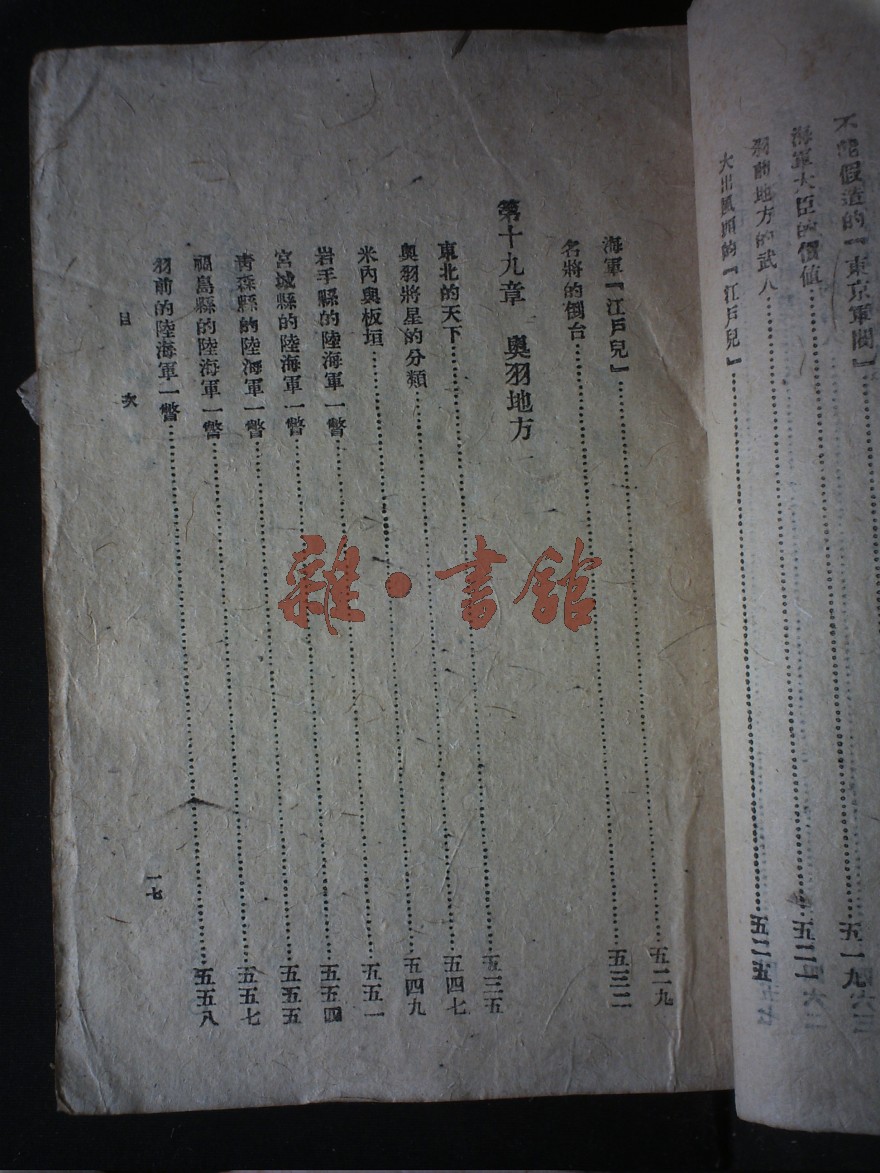 不能假造的『東京軍閥』……五一九
海軍大臣的價值……五二一
羽前地方的武人
大出風頭的『江戶兒』……五二五
海軍『江戶兒』……五二九
名將的倒台……五三二
第十九章 奧羽地方
東北的天下……五三五
奧羽將星的分類……五四七
米內與板垣……五四九
岩手縣的陸海軍一瞥……五五一
宮城縣的陸海軍一瞥……五五四
青森縣的陸海軍一瞥……五五五
福島縣的陸海軍一瞥……五五七
羽前的陸海軍一瞥……五五八
目次
一七
雜·書館